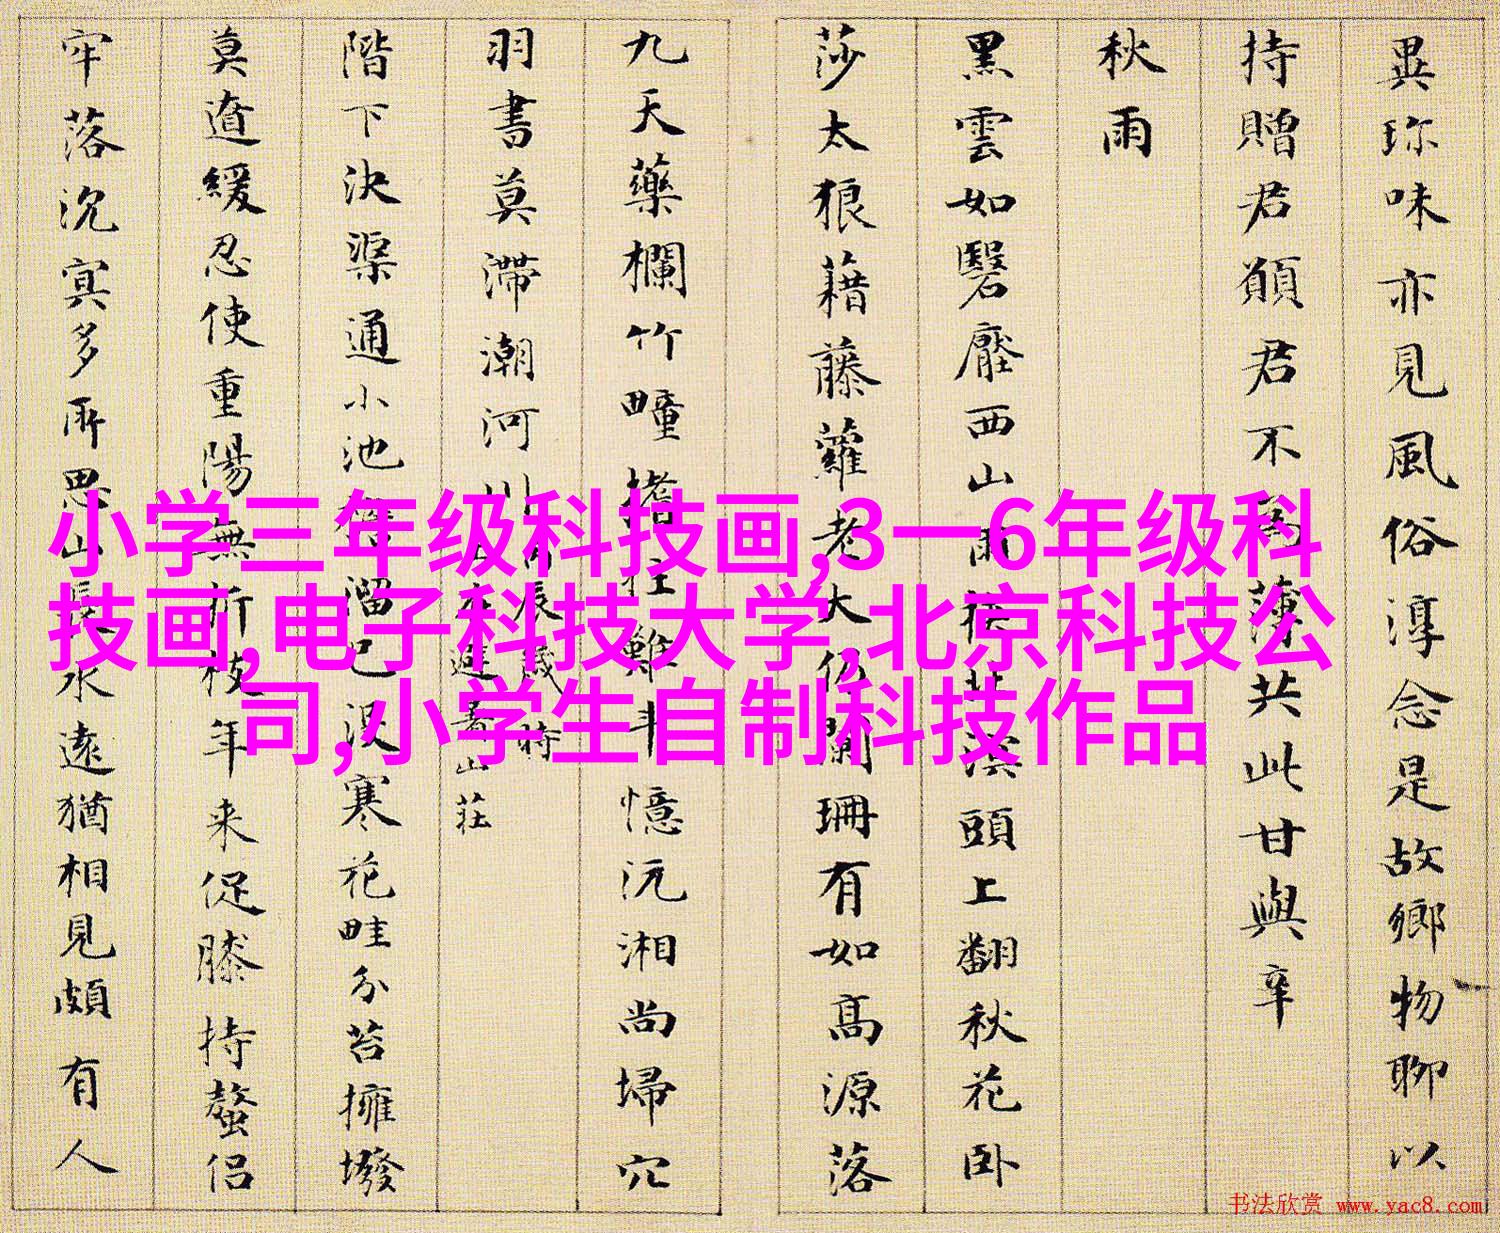 異珎味亦見風俗淳念是故鄉物聊以
持贈君願君不為薄共此甘與辛
秋雨
黑雲如翳壓西山雨 溪頭上翻秋花卧
莎太狼藉藤蘿老大仍闌珊有如高源落
九天藥欄竹疃 柱難斗憶沅湘尚埽穴
羽書莫滯潮河川
辰歲時
避暑山莊
階下決渠通小池 溜已没寒花畦分苔擁墢
莫遒緩忍使重陽無折枝年来促膝持螯侣
牢落沉冥多所思山長水遠猶相見頗有人
小学三年级科技画,3一6年级科
技画,电子科技大学,北京科技公
司,小学生自制科技作品
书法欣赏 www.yac8.com